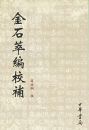 金石萃編校補
中華書局